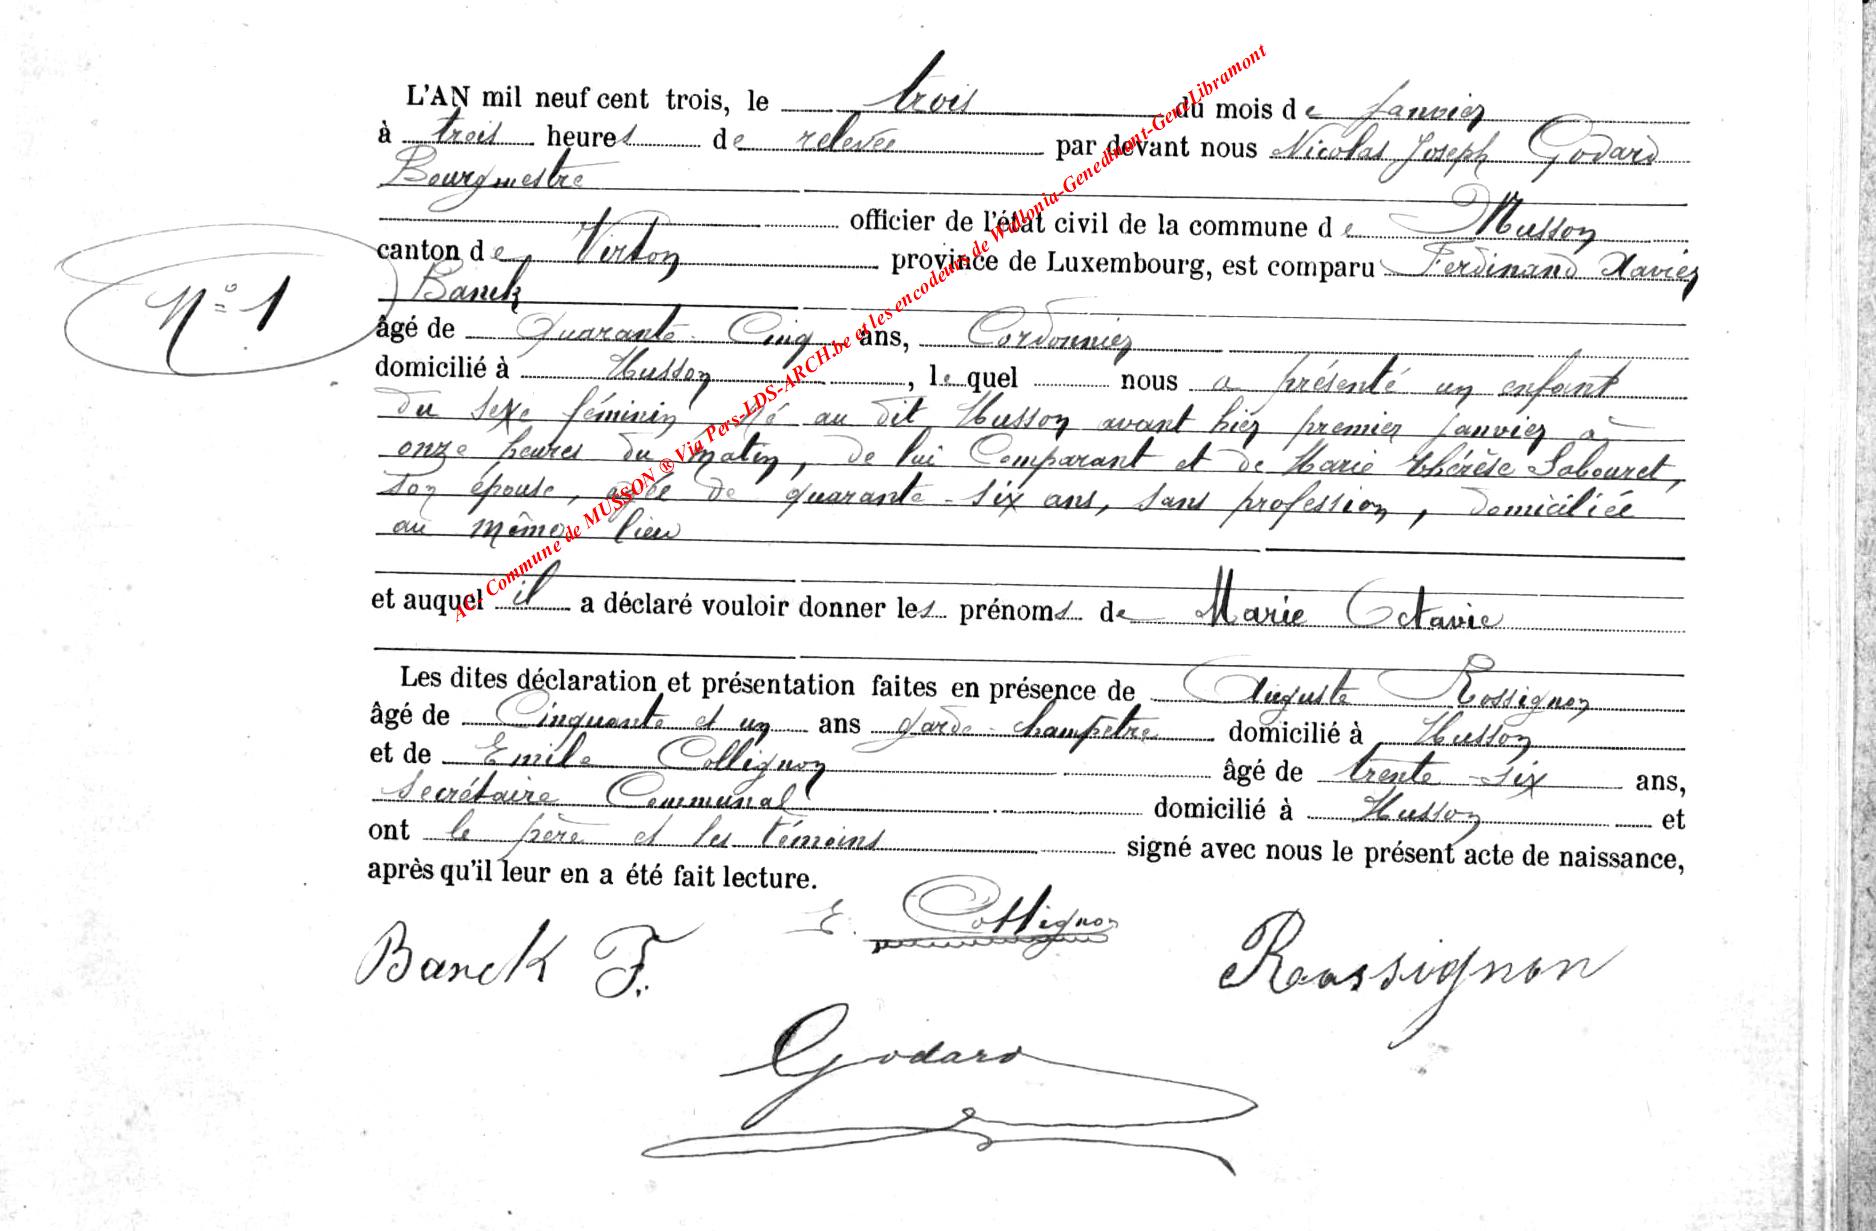 L'AN mil neuf cent trois, le trois du mois de janvier
à trois heures de relevée par devant nous Nicolas Joseph Godard
Bourgmestre
officier de l'état civil de la commune de Musson
canton de Virton province de Luxembourg, est comparu Ferdinand Xavier
Banck
N° 1
âgé de quarante-cinq ans, Cordonnier
domicilié à Musson, lequel nous a présenté un enfant
du sexe féminin, né au dit Musson avant hier premier janvier à
onze heures du matin, de lui Comparant et de Marie Thérèse Sabouret,
son épouse, agée de quarante-six ans, sans profession, domiciliée
au même lieu
et auquel il a déclaré vouloir donner les prénoms de Marie Octavie
Les dites déclaration et présentation faites en présence de Auguste Rossignon
âgé de Cinquante et un ans garde-champêtre domicilié à Musson
et de Emile Collignon âgé de trente-six ans,
Secrétaire Communal domicilié à Musson et
ont le père et les témoins signé avec nous le présent acte de naissance,
après qu'il leur en a été fait lecture.
Banck F. E. Collignon Rossignon
Godard
AC. Commune de MUSSON ® Via Pers-LDS-ARCH.be et les encodeurs de Wallonia-Genedinant-GeneLibramont